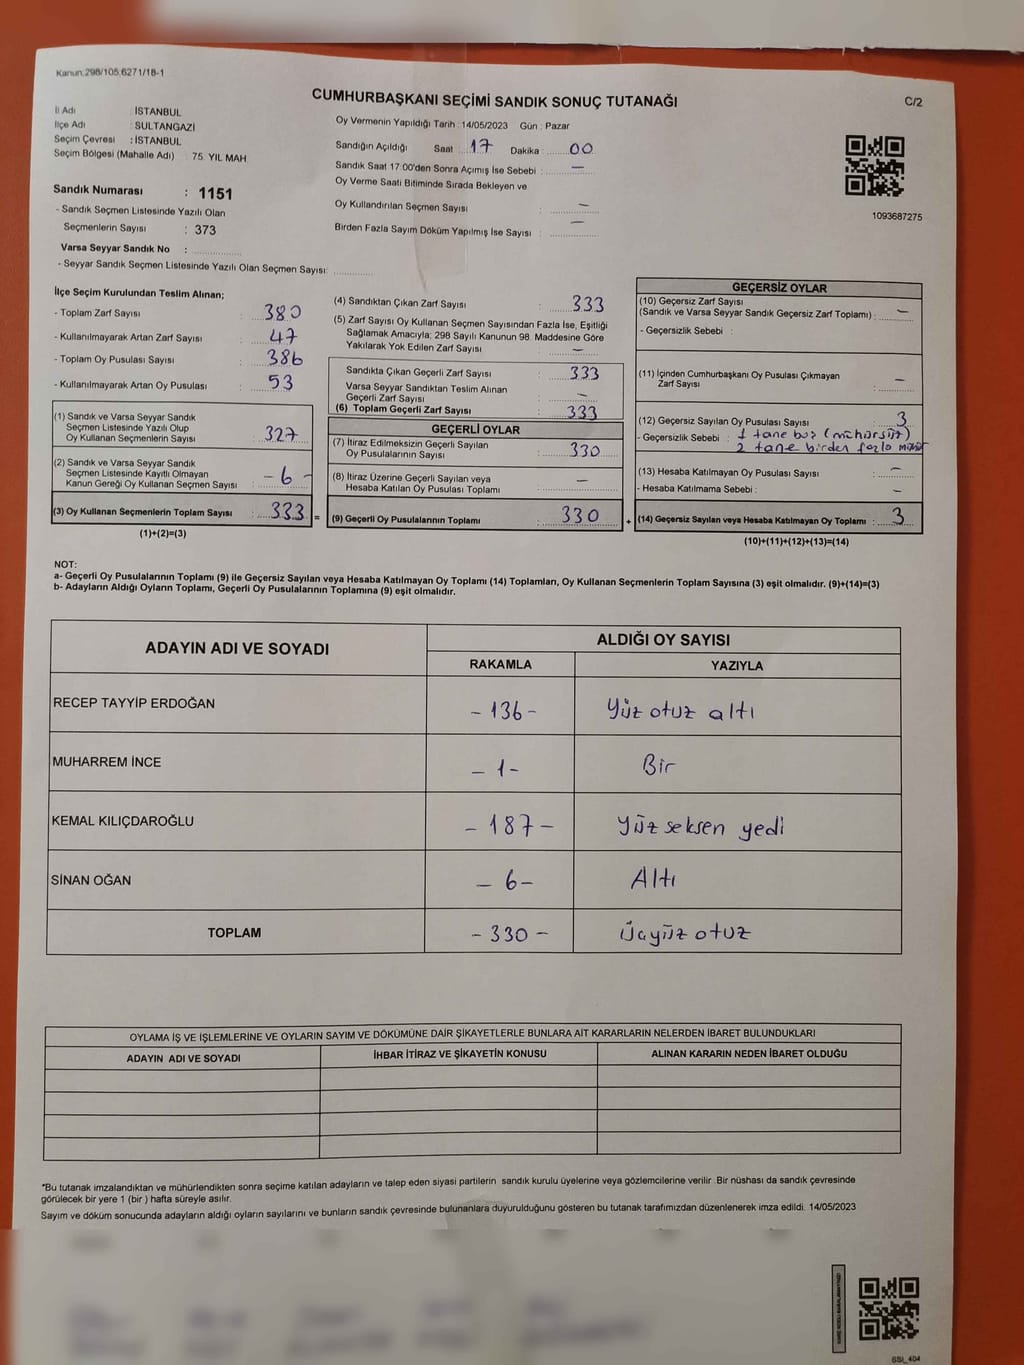 Kanun.298/105,6271/18-1
CUMHURBAŞKANI SEÇİMİ SANDIK SONUÇ TUTANAĞI
C/2
İl Adı : İSTANBUL
İlçe Adı : SULTANGAZİ
Seçim Çevresi : İSTANBUL
Seçim Bölgesi (Mahalle Adı) : 75. YIL MAH.
Oy Vermenin Yapıldığı Tarih : 14/05/2023 Gün : Pazar
Sandığın Açıldığı Saat : 17 Dakika : 00
Sandık Saat 17:00'den Sonra Açımış İse Sebebi : —
Oy Verme Saati Bitiminde Sırada Bekleyen ve
Oy Kullandırılan Seçmen Sayısı : —
Birden Fazla Sayım Döküm Yapılmış İse Sayısı : —
1093687275
Sandık Numarası : 1151
- Sandık Seçmen Listesinde Yazılı Olan
Seçmenlerin Sayısı : 373
Varsa Seyyar Sandık No :
- Seyyar Sandık Seçmen Listesinde Yazılı Olan Seçmen Sayısı:
İlçe Seçim Kurulundan Teslim Alınan;
- Toplam Zarf Sayısı : 380
- Kullanılmayarak Artan Zarf Sayısı : 47
- Toplam Oy Pusulası Sayısı : 386
- Kullanılmayarak Artan Oy Pusulası : 53
(1) Sandık ve Varsa Seyyar Sandık
Seçmen Listesinde Yazılı Olup
Oy Kullanan Seçmenlerin Sayısı : 327
(2) Sandık ve Varsa Seyyar Sandık
Seçmen Listesinde Kayıtlı Olmayan
Kanun Gereği Oy Kullanan Seçmen Sayısı : - 6 -
(3) Oy Kullanan Seçmenlerin Toplam Sayısı : 333 =
(1)+(2)=(3)
(4) Sandıktan Çıkan Zarf Sayısı : 333
(5) Zarf Sayısı Oy Kullanan Seçmen Sayısından Fazla İse, Eşitliği
Sağlamak Amacıyla; 298 Sayılı Kanunun 98. Maddesine Göre
Yakılarak Yok Edilen Zarf Sayısı : —
Sandıkta Çıkan Geçerli Zarf Sayısı : 333
Varsa Seyyar Sandıktan Teslim Alınan
Geçerli Zarf Sayısı : —
(6) Toplam Geçerli Zarf Sayısı : 333
GEÇERLİ OYLAR
(7) İtiraz Edilmeksizin Geçerli Sayılan
Oy Pusulalarının Sayısı : 330
(8) İtiraz Üzerine Geçerli Sayılan veya
Hesaba Katılan Oy Pusulası Toplamı : —
(9) Geçerli Oy Pusulalarının Toplamı : 330 +
GEÇERSİZ OYLAR
(10) Geçersiz Zarf Sayısı
(Sandık ve Varsa Seyyar Sandık Geçersiz Zarf Toplamı) : —
- Geçersizlik Sebebi :
(11) İçinden Cumhurbaşkanı Oy Pusulası Çıkmayan
Zarf Sayısı : —
(12) Geçersiz Sayılan Oy Pusulası Sayısı : 3
- Geçersizlik Sebebi : 1 tane boş (mühürsüz)
2 tane birden fazla mühür
(13) Hesaba Katılmayan Oy Pusulası Sayısı : —
- Hesaba Katılmama Sebebi : —
(14) Geçersiz Sayılan veya Hesaba Katılmayan Oy Toplamı : 3
(10)+(11)+(12)+(13)=(14)
NOT:
a- Geçerli Oy Pusulalarının Toplamı (9) ile Geçersiz Sayılan veya Hesaba Katılmayan Oy Toplamı (14) Toplamları, Oy Kullanan Seçmenlerin Toplam Sayısına (3) eşit olmalıdır. (9)+(14)=(3)
b- Adayların Aldığı Oyların Toplamı, Geçerli Oy Pusulalarının Toplamına (9) eşit olmalıdır.
ADAYIN ADI VE SOYADI
ALDIĞI OY SAYISI
RAKAMLA YAZIYLA
RECEP TAYYİP ERDOĞAN - 136 - Yüz otuz altı
MUHARREM İNCE - 1 - Bir
KEMAL KILIÇDAROĞLU - 187 - Yüz seksen yedi
SİNAN OĞAN - 6 - Altı
TOPLAM - 330 - Üçyüz otuz
OYLAMA İŞ VE İŞLEMLERİNE VE OYLARIN SAYIM VE DÖKÜMÜNE DAİR ŞİKAYETLERLE BUNLARA AİT KARARLARIN NELERDEN İBARET BULUNDUKLARI
ADAYIN ADI VE SOYADI İHBAR İTİRAZ VE ŞİKAYETİN KONUSU ALINAN KARARIN NEDEN İBARET OLDUĞU
*Bu tutanak imzalandıktan ve mühürlendikten sonra seçime katılan adayların ve talep eden siyasi partilerin sandık kurulu üyelerine veya gözlemcilerine verilir. Bir nüshası da sandık çevresinde
görülecek bir yere 1 (bir ) hafta süreyle asılır.
Sayım ve döküm sonucunda adayların aldığı oyların sayılarını ve bunların sandık çevresinde bulunanlara duyurulduğunu gösteren bu tutanak tarafımızdan düzenlenerek imza edildi. 14/05/2023